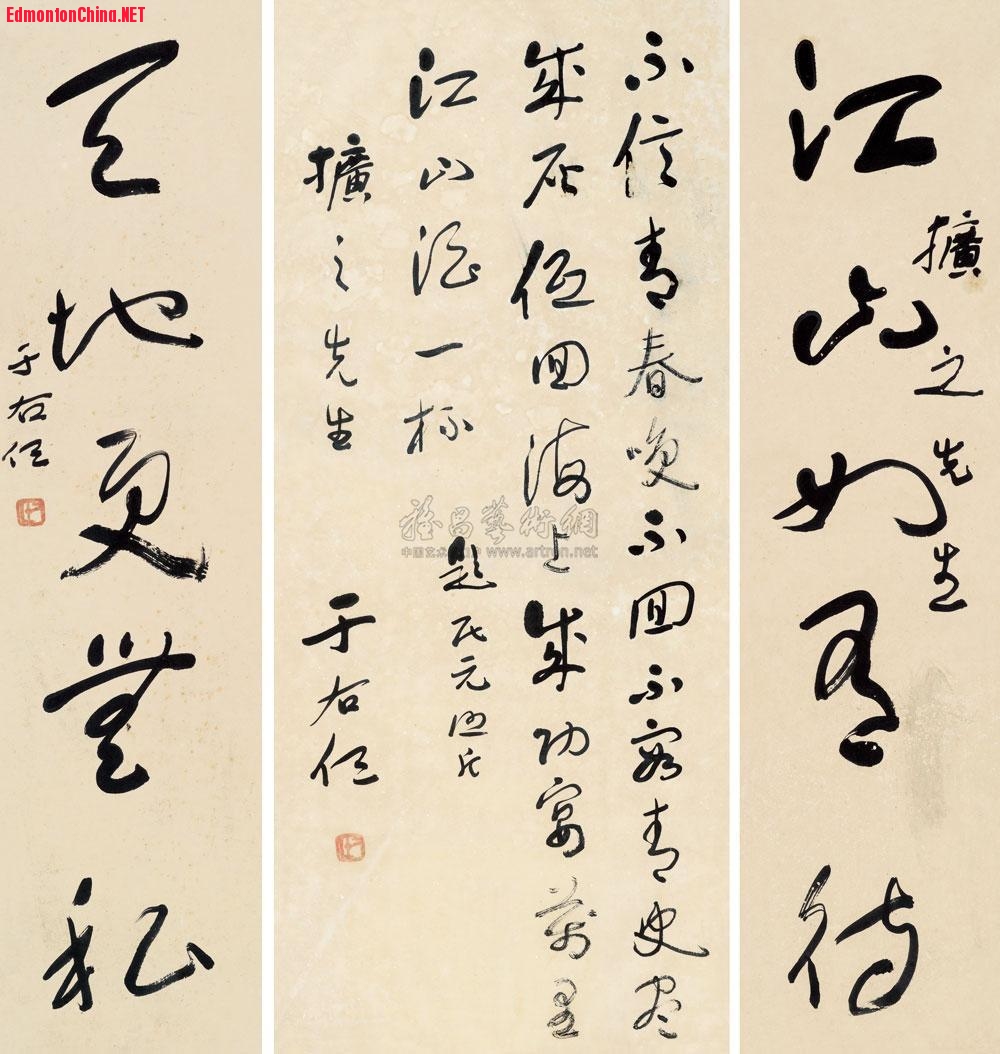 EdmontonChina.NET
江山如有待
擴之先生
不信青春喚不回不容青史盡
成灰低回海上成功宴萬里
江山酒一杯 題民元照片
擴之先生 于右任
天地更無私
于右任
雅昌藝術網
www.artron.net